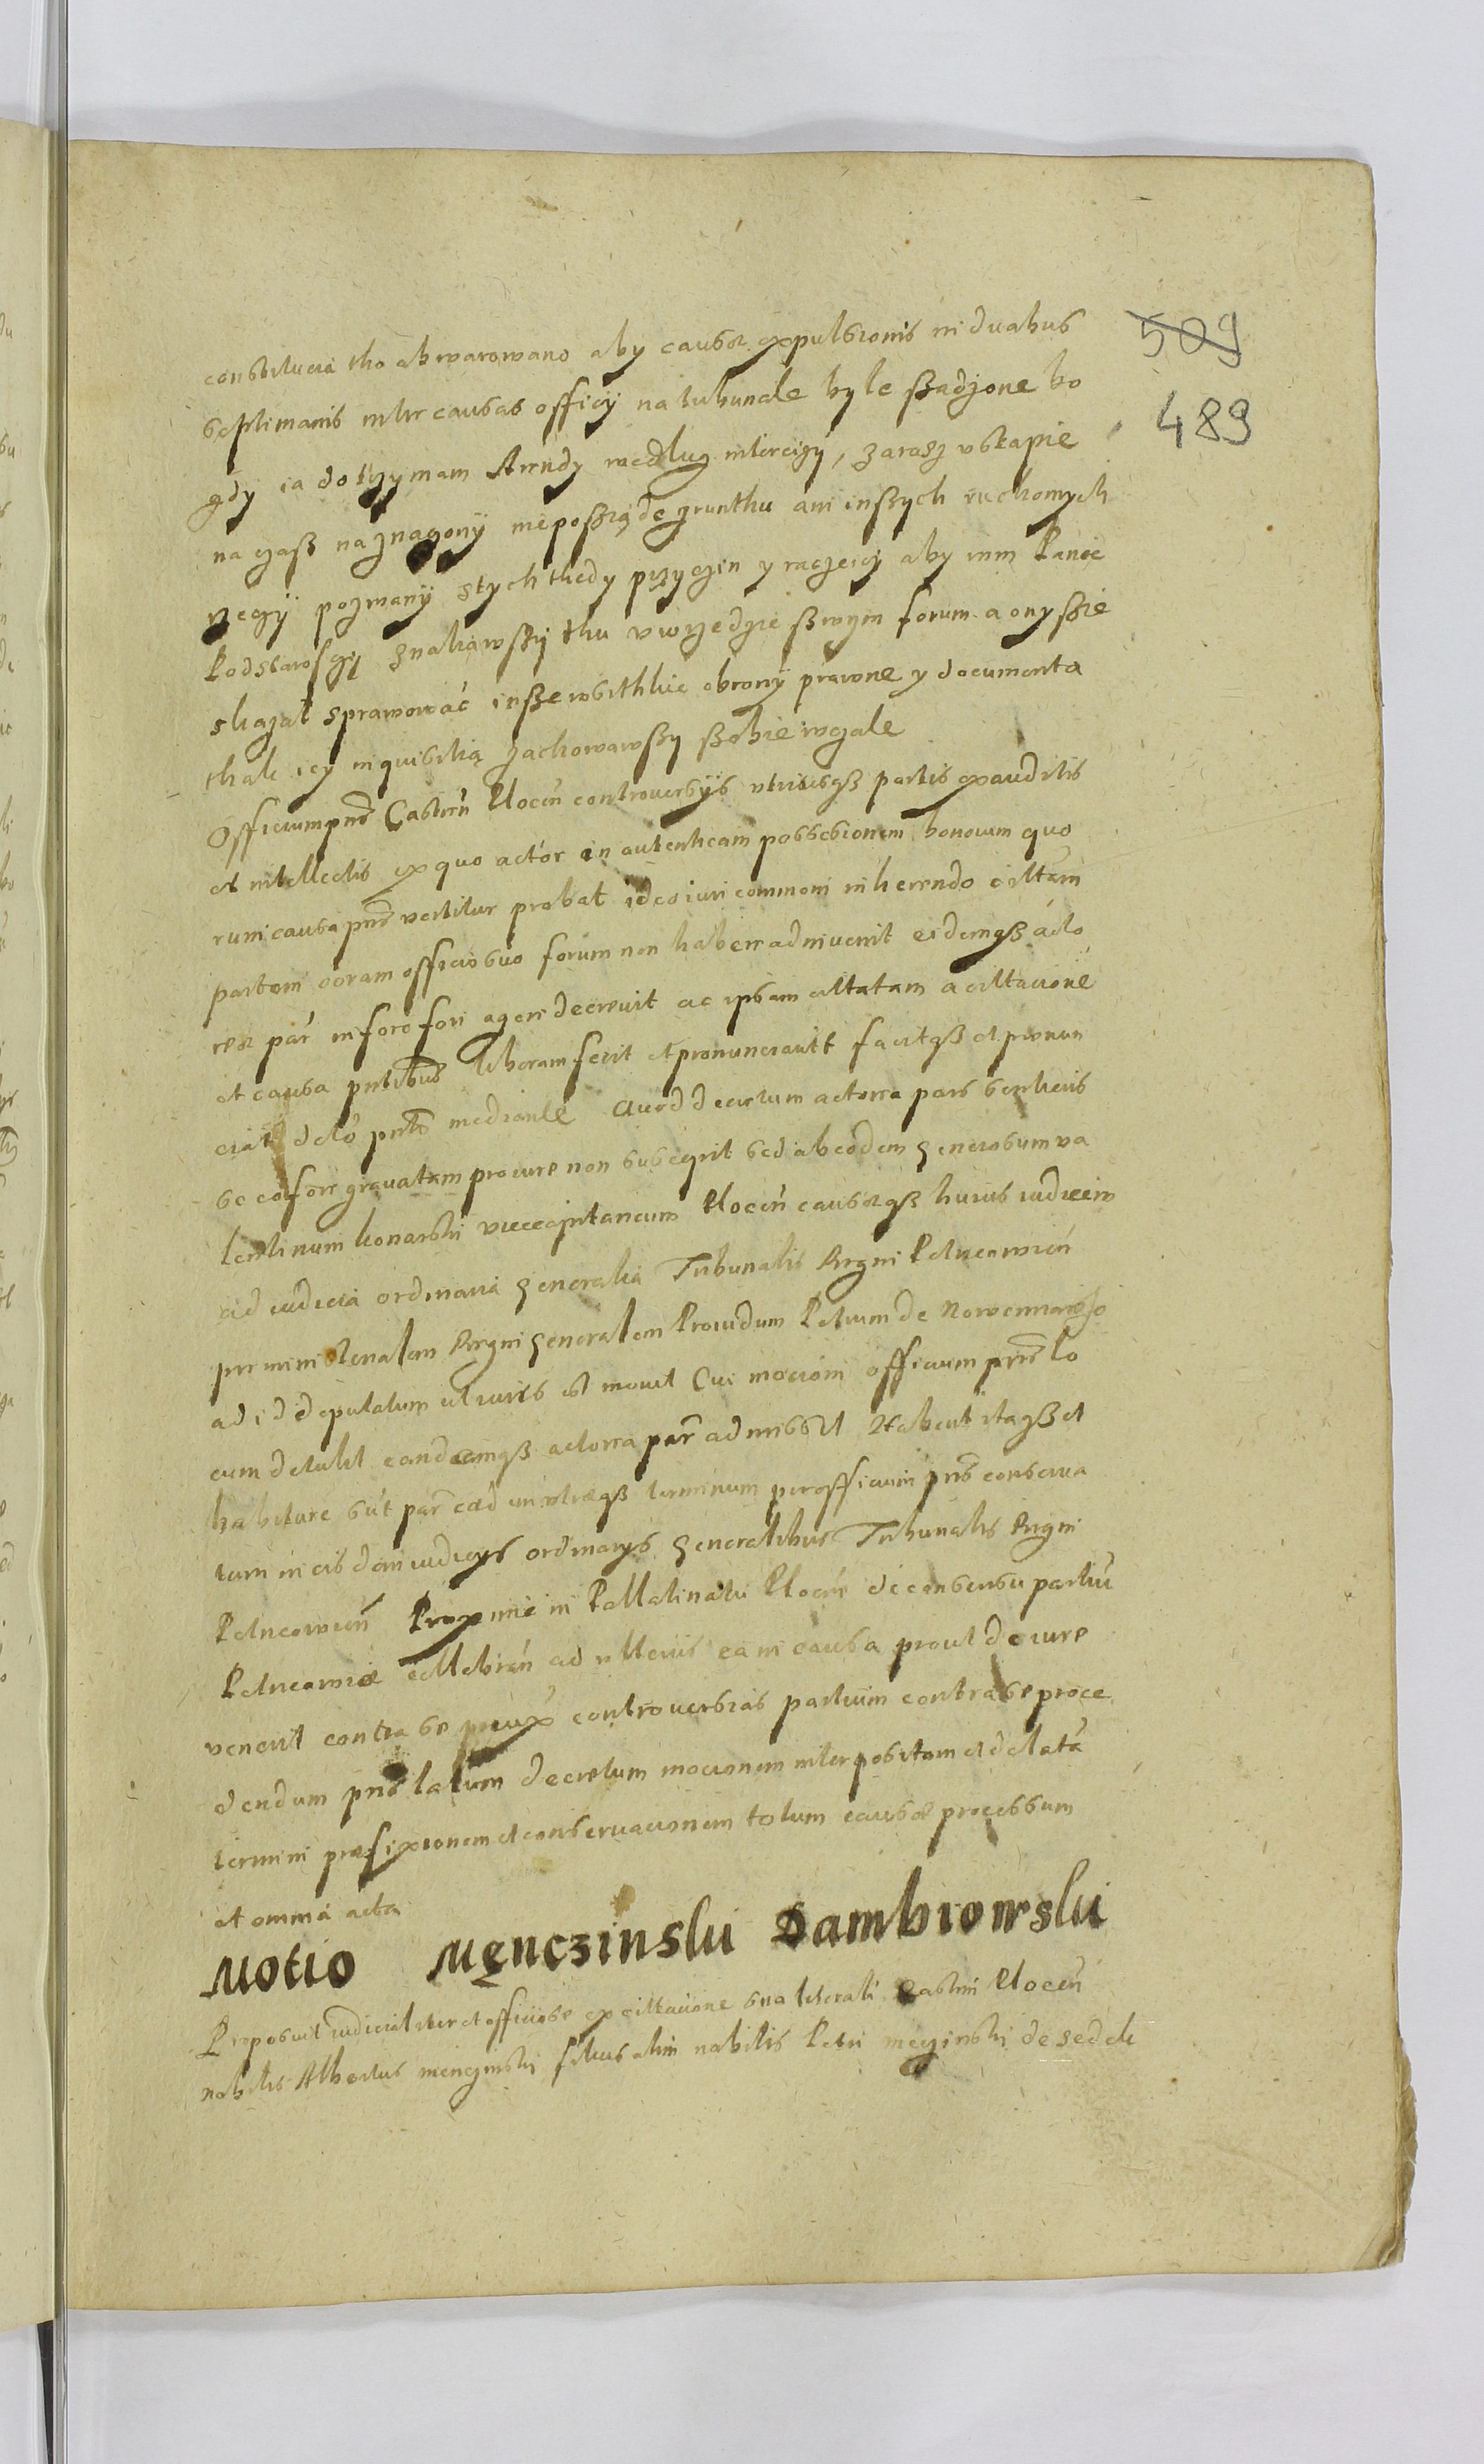 constitucia tho obwarowano aby causæ expulsionis in duabus
509
septimanis inter causas officij na tribunale byle sządzone bo
489
gdy ia dotrzymam Arendy według intercizy, zarasz ustąpie
na czasz naznaczony nieposziądę grunthu ani inszych ruchomych
rzeczy pozwany stych thedy przyczin y raczeicz aby mm Panie
Podstarosczy znaliawszy thu vwrzedzie szwym forum a onyszie
skazał sprawowac insze wsithkie obrony prawne y documenta
thak icy inquisitią zachowawszy szobie wczale
Officium pns Castren Plocen controversijs utriusqз partis exauditis
et intellectis ex quo actor in autenticam possessionem bonorum quo
rum causa pns vertitur probat ideo iuri communi inherendo citatam
partem coram officio suo forum non habere adinvenit eidemqз acto
reæ par in foro fori agere decrevit ac ipsam citatam a citatione
et causa pntibus liberam fecit et pronunciavit facitqз et pronun
ciat dcto pnti mediante Quod decretum actorea pars senties
se eo fore gravatam pro iure non suscepit sed ab eodem generosum va
lentinum konarski vicecaptaneum Plocen causæqз huius iudicem
ad iudicia ordinaria generalia Tribunalis Regni Petricovien
per ministerialem Regni generalem Providum Petrum de Nowemiasto
ad id deputatum ut iuris est movit Cui motioni officium pns lo
cum detulit eandemqз actorea par admissit Habent itaqз et
habiture sut par eæd in utræqз terminum per officium pns conserva
tum in eisdem iudicijs ordinarijs generalibus Tribunalis Regni
Petricovien Proxime in Pallatinatu Plocen de consensu partiu
Petricoviæ cellebran ad ulterius ea in causa prout de iure
venerit contra se iuxo controversias partium contra se proce
dendum pns latum decretum motionem interpositam et delatā
termini præfixionem et conservationem totum causæ processum
et omnia acta
Motio Męnczinski Dambrowski
Proposuit iudicialiter et officiose ex citatione sua literali Castrin Plocen
nobilis Albertus menczinski filius olim nobilis Petri męczinski de sedek